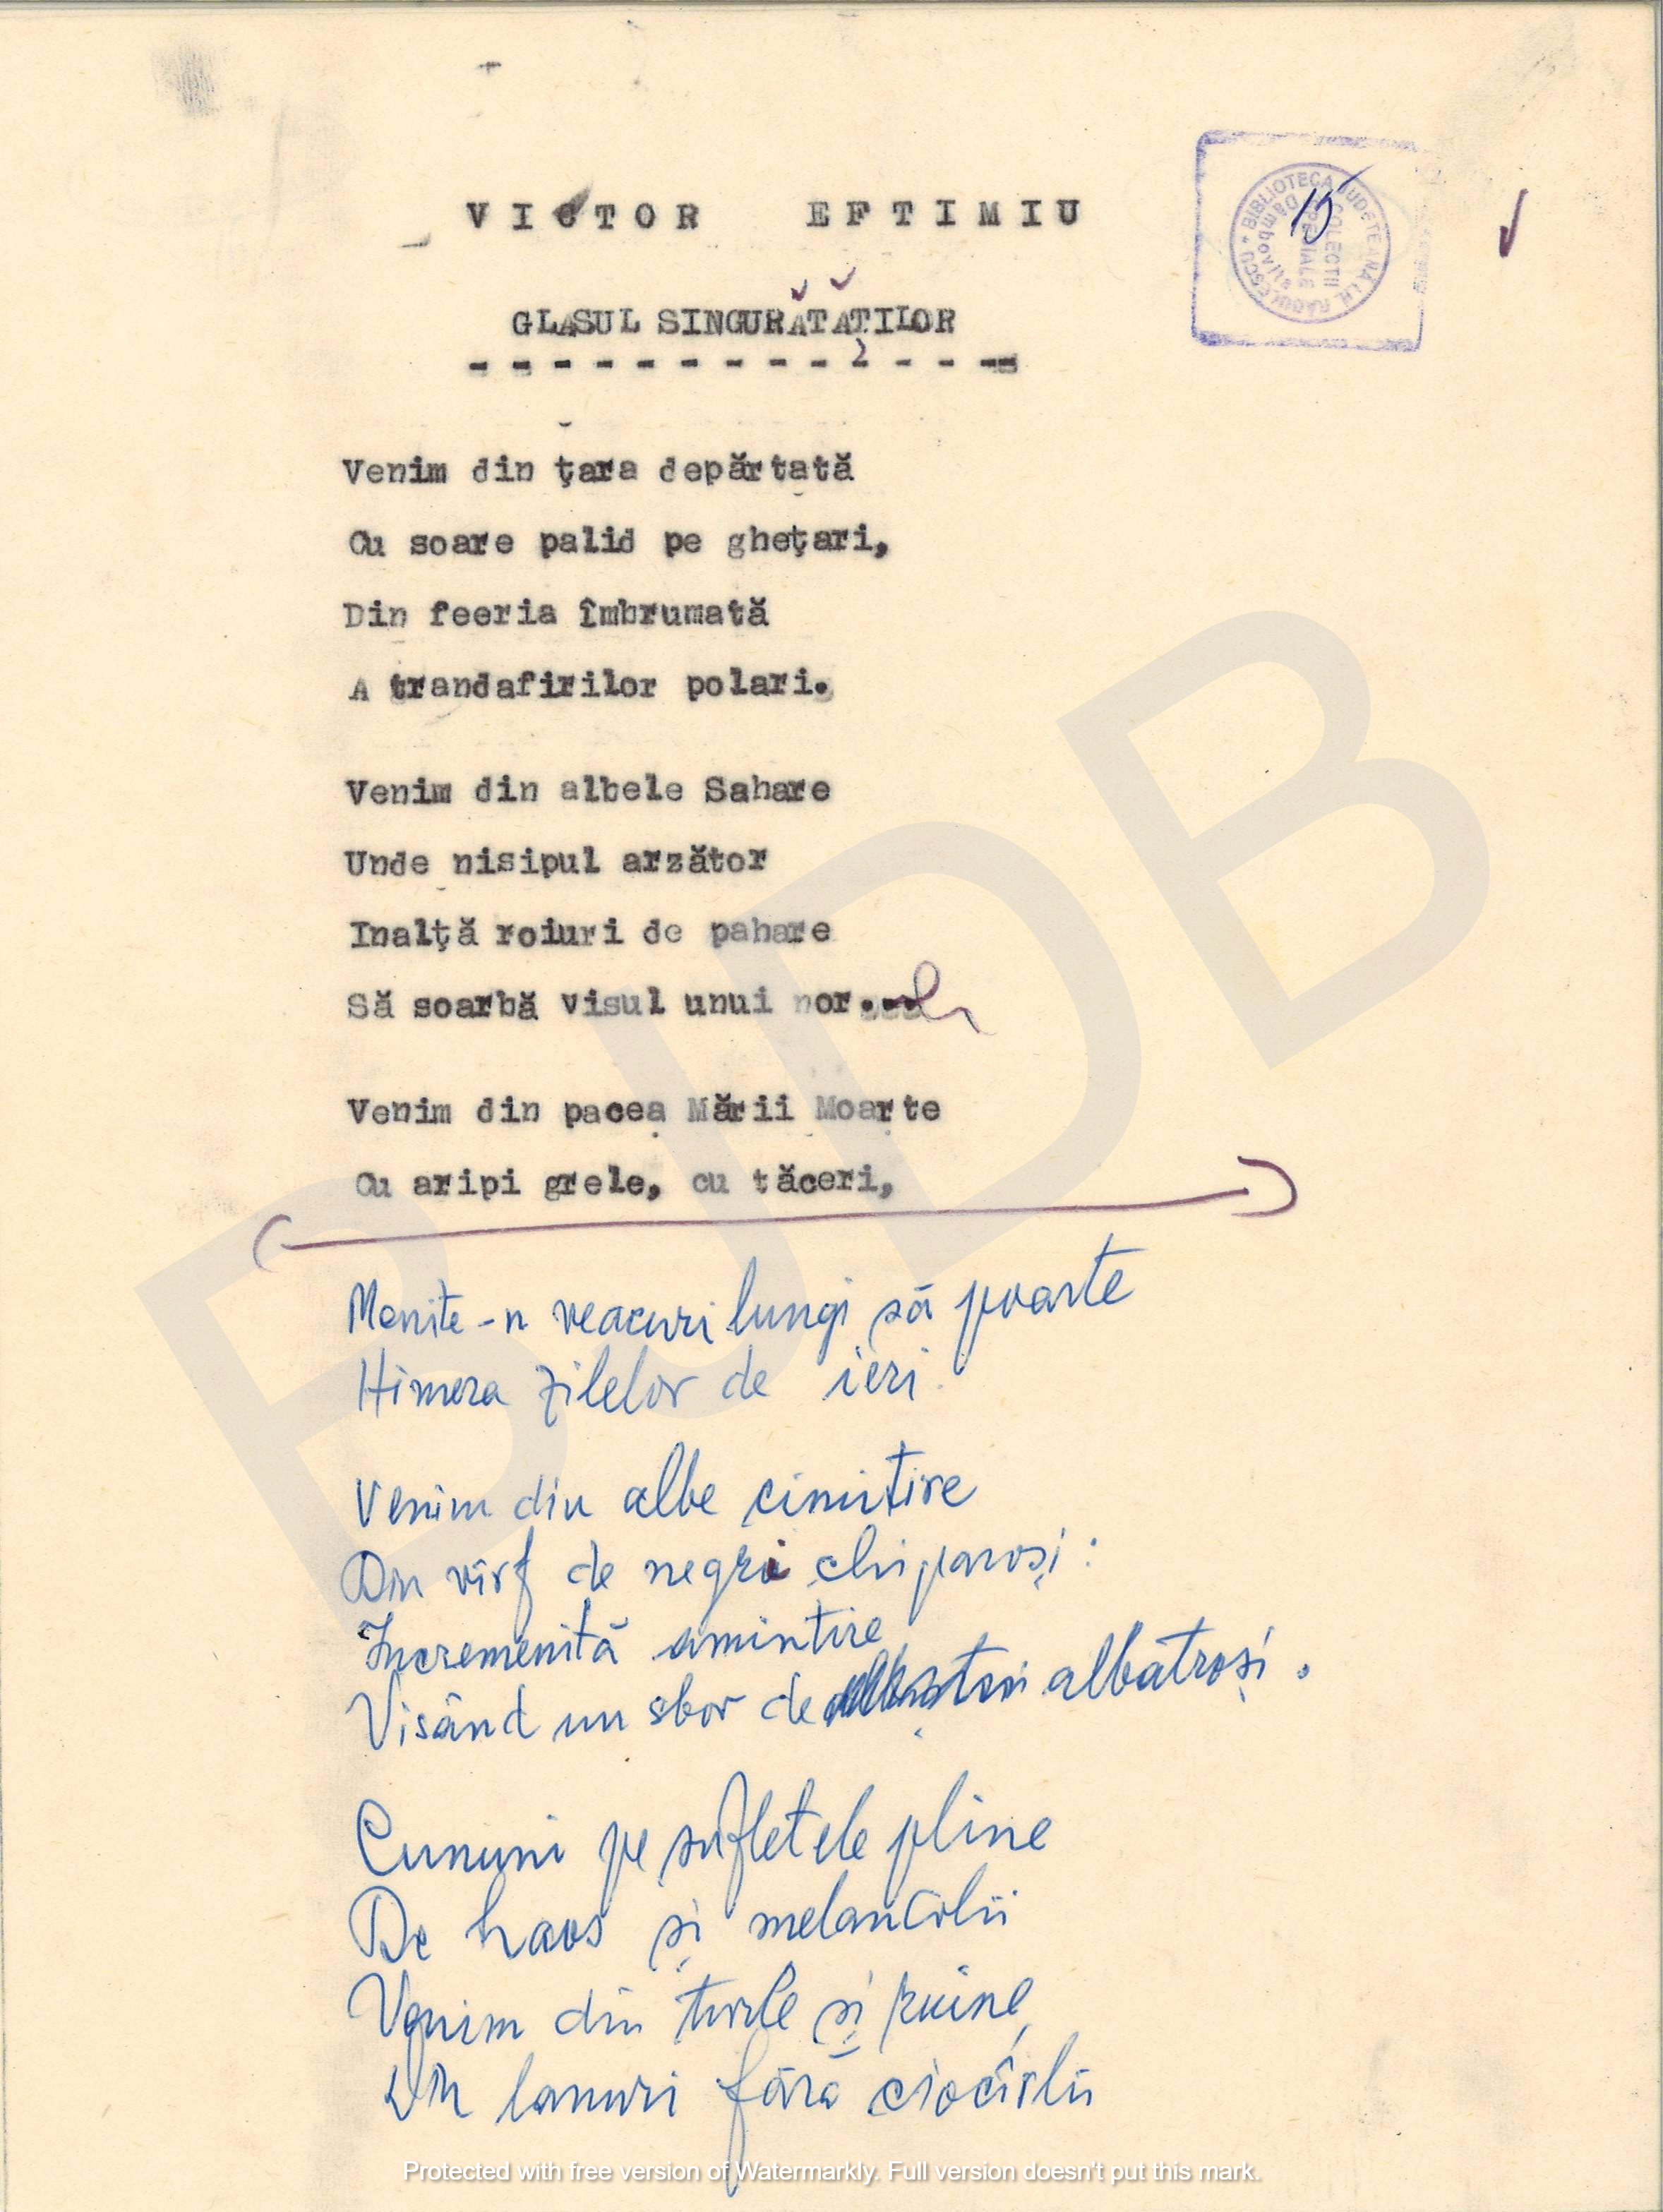 VICTOR EFTIMIU
15
GLASUL SINGURĂTĂȚILOR
Venim din țara depărtată
Cu soare palid pe ghețari,
Din feeria îmbrumată
A trandafirilor polari.
Venim din albele Sahare
Unde nisipul arzător
Inalță roiuri de pahare
Să soarbă visul unui nor...
Venim din pacea Mării Moarte
Cu aripi grele, cu tăceri,
Menite-n veacuri lungi să poarte
Himera zilelor de ieri.
Venim din albe cimitire
Din vîrf de negri chiparoși:
Incremenită amintire
Visând un sbor de albatroși.
Cununi pe sufletele pline
De haos și melancolii
Venim din turle și ruine,
Din lanuri fără ciocîrlii
BIBLIOTECA JUDEȚEANĂ I.H. RĂDULESCU
Dâmbovița
COLECȚII
SPECIALE
BJDB
Protected with free version of Watermarkly. Full version doesn't put this mark.